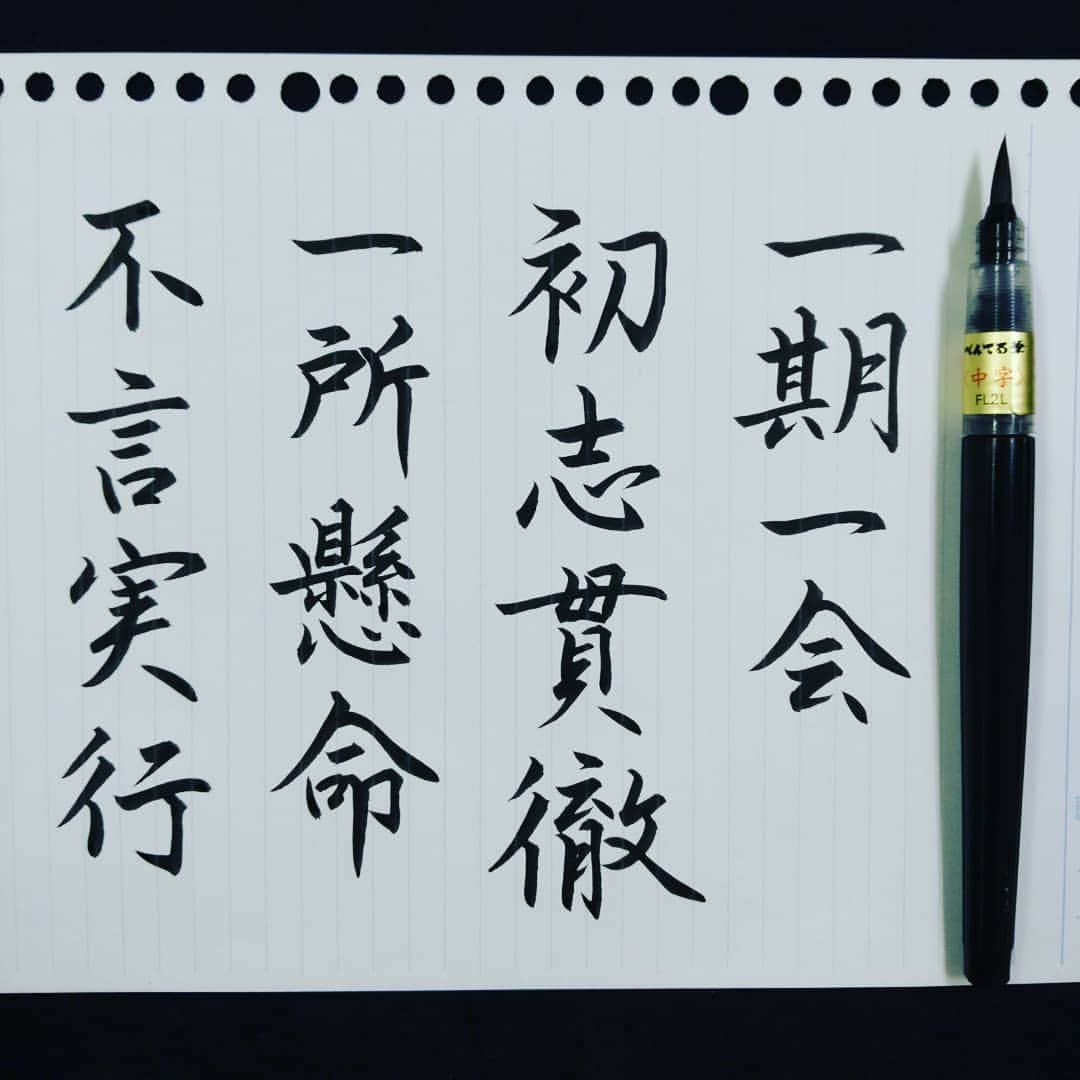 一期一会
初志貫徹
一所懸命
不言実行
ぺんてる筆
中字
FL2L